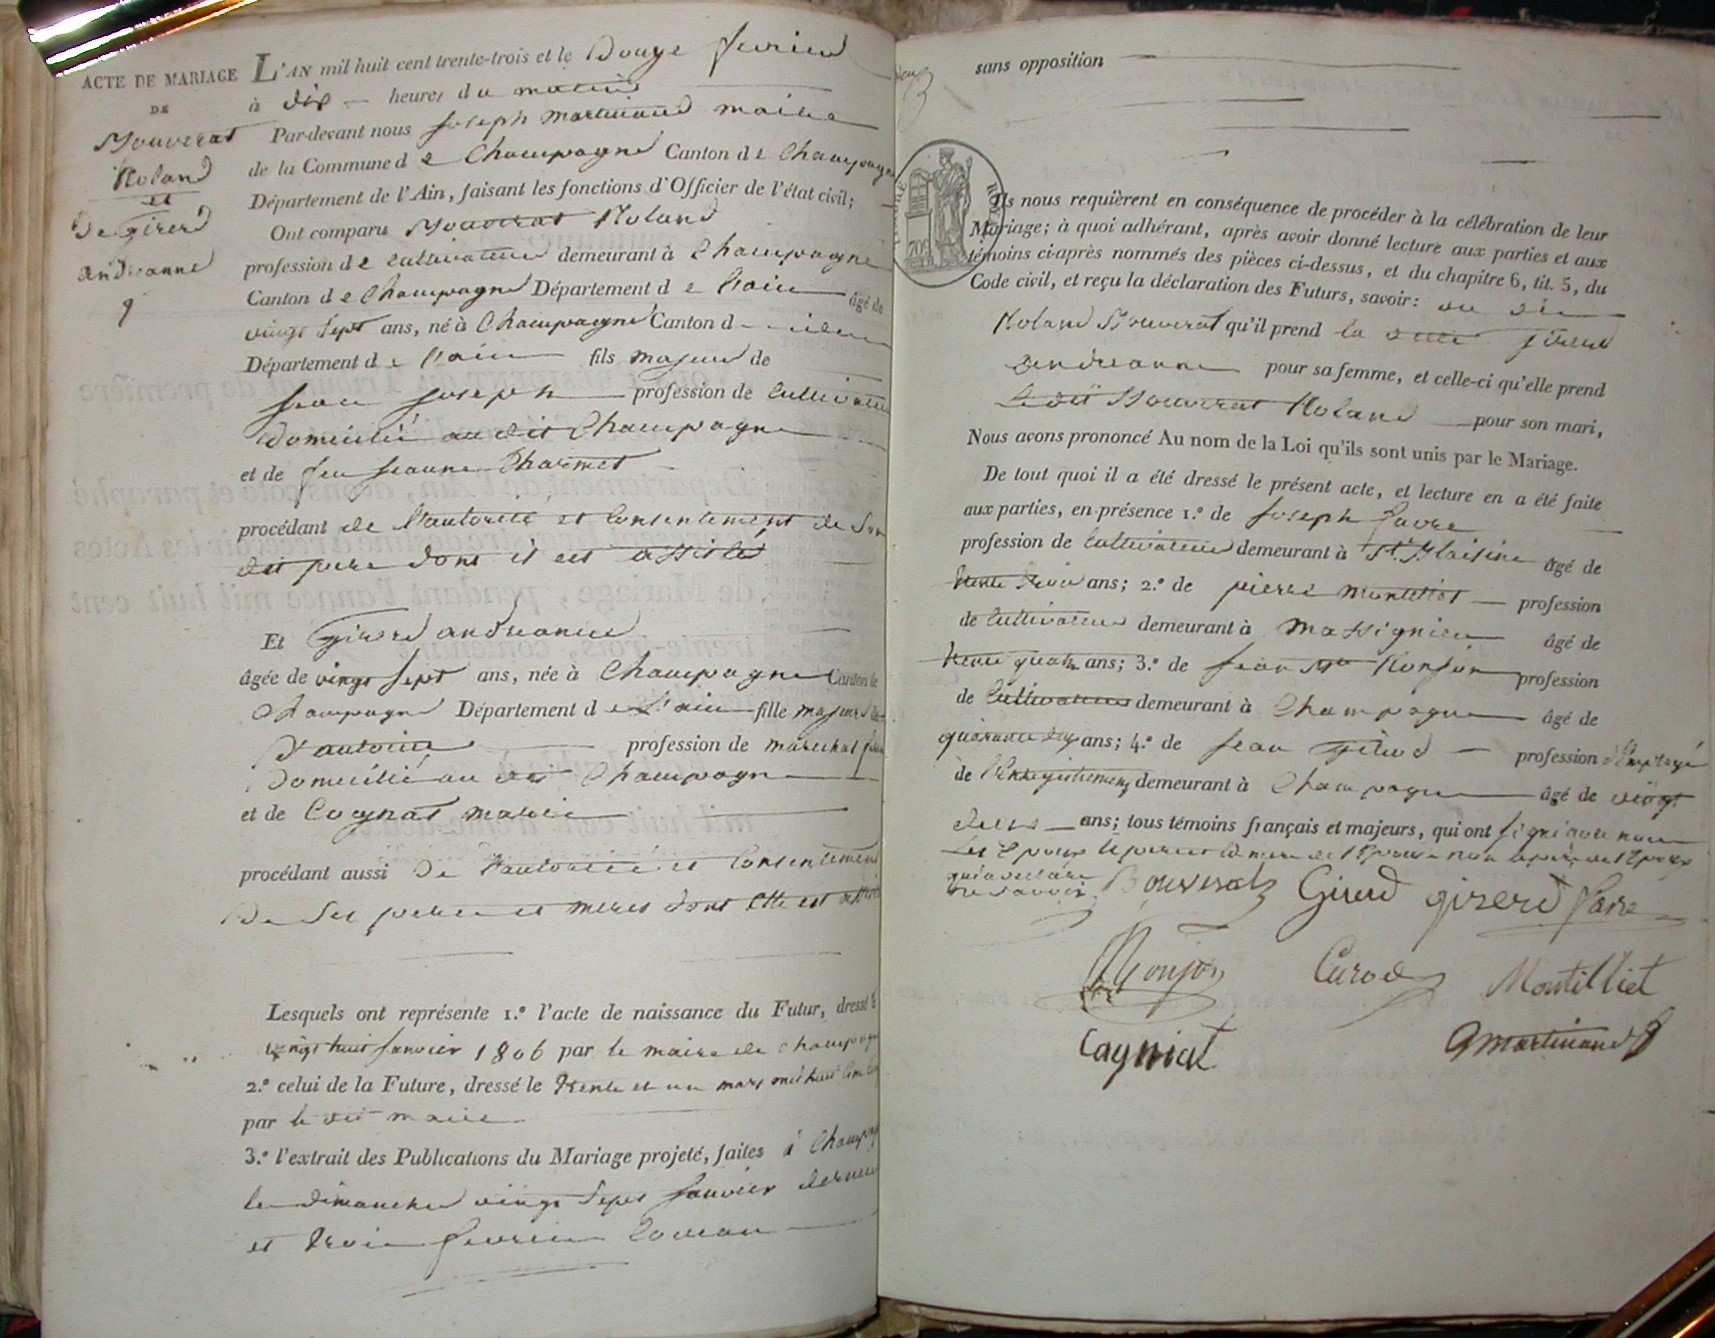 ACTE DE MARIAGE
DE
Bouverat
Roland
et
De girerd
andreanne
9
L'AN mil huit cent trente-trois et le Douze fevrier
à dix heures du matin
Par-devant nous Joseph martinand maire
de la Commune de Champagne Canton de Champagne
Département de l'Ain, faisant les fonctions d'Officier de l'état civil;
Ont comparu Bouverat Roland
profession de cultivateur demeurant à Champagne
Canton de Champagne Département de l'ain âgé de
vingt sept ans, né à Champagne Canton d idem
Département de l'ain fils majeur de
jean joseph profession de Cultivateur
domicilié au dit Champagne
et de feu jeanne Charmet
procédant de l'autorité et Consentement de Son
dit pere dont il est assisté
Et Girerd andreanne
âgée de vingt sept ans, née à Champagne Canton de
Champagne Département de l'ain fille majeure
D'antoine profession de marechal
domicilié au dit Champagne
et de Cognat marie
procédant aussi De l'autorité et Consentement
De Ses pere et mere dont Elle est assisté
Lesquels ont représenté 1.º l'acte de naissance du Futur, dressé le
vingt huit janvier 1806 par le maire de champagne
2.º celui de la Future, dressé le trente et un mars mil huit Cent
par le dit maire
3.º l'extrait des Publications du Mariage projeté, faites à Champagne
le dimanche vingt Sept janvier dernier
et trois fevrier Courant
sans opposition
709
Ils nous requièrent en conséquence de procéder à la célébration de leur
Mariage; à quoi adhérant, après avoir donné lecture aux parties et aux
témoins ci-après nommés des pièces ci-dessus, et du chapitre 6, tit. 5, du
Code civil, et reçu la déclaration des Futurs, savoir:
Roland Bouverat qu'il prend la girerd
andreanne pour sa femme, et celle-ci qu'elle prend
Le dit Bouverat Roland pour son mari,
Nous avons prononcé Au nom de la Loi qu'ils sont unis par le Mariage.
De tout quoi il a été dressé le présent acte, et lecture en a été faite
aux parties, en présence 1.º de joseph favre
profession de Cultivateur demeurant à âgé de
trente trois ans; 2.º de pierre montillet profession
de Cultivateur demeurant à massignieu âgé de
trente quatre ans; 3.º de jean Monjon profession
de Cultivateur demeurant à Champagne âgé de
quarante ans; 4.º de jean profession d'Employé
de l'Enregistrement demeurant à Champagne âgé de vingt
deux ans; tous témoins français et majeurs, qui ont Signé avec nous
Bouverat Girerd girerd favre
Monjon Curod Montilliet
Cagniat martinand